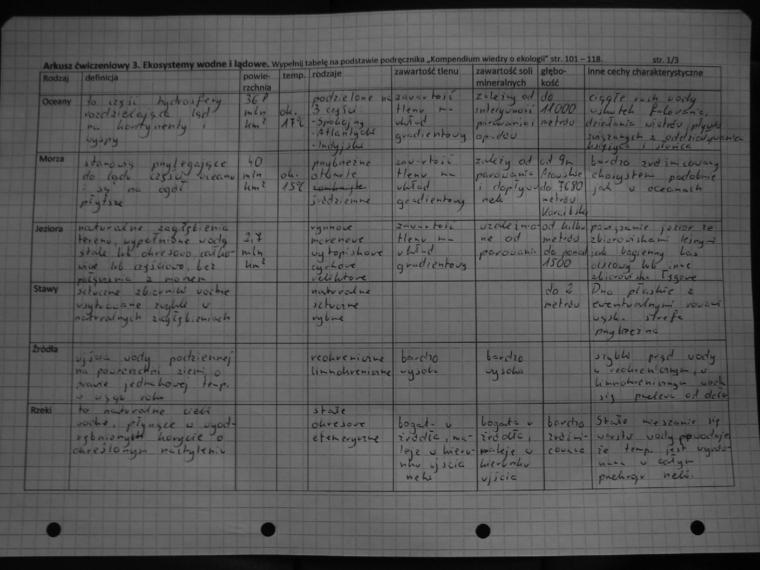 Arkusz ćwiczeniowy 3. Ekosystemy wodne i lądowe. Wypełnij tabelę na podstawie podręcznika „Kompendium wiedzy o ekologii" str. 101 – 118. str. 1/3
Rodzaj definicja powie- temp. rodzaje zawartość tlenu zawartość soli głębo- inne cechy charakterystyczne
rzchnia mineralnych kość
Oceany to część hydrosfery podzielone na zawartość zależny od do ciągły ruch wody
rozdzielająca ląd mln ok. 3 części tlenu ma 11000 wskutek falowania,
na kontynenty i km² 17°C - Spokojny układ parowania i metrów działania wiatrów
wyspy - Atlantycki gradientowy opadów
- Indyjski księżyca i słońca
Morza stanowią przylegające 40 przybrzeżne zawartość zależy od od 9m bardzo zróżnicowany
do lądu części oceanu mln ok. otwarte tlenu ma parowania Azowskie ekosystem podobnie
i są na ogół km² 15°C układ i dopływu do jak w oceanach
płytsze śródziemne gradientowy rzek metrów
Jeziora naturalne zagłębienia rynnowe zawartość uzależnio- od kilku powiązanie jezior ze
terenu, wypełnione wodą 2,7 morenowe tlenu ma ne od metrów zbiorowiskami leśnymi
stale lub okresowo, mln wytopiskowe układ parowania do ponad jak bagienny las
lub częściowo, bez km² cyrkowe gradientowy 1500 olszowy lub inne
połączenia z morzem reliktowe zbiorowiska
Stawy sztuczne zbiorniki wodne naturalne do 2 Dno płaskie z
usytuowane zwykle w sztuczne metrów ewentualnymi rowami
naturalnych zagłębieniach rybne wąska strefa
przybrzeżna
Źródła ujścia wody podziemnej reokreniczne bardzo bardzo szybki prąd wody
na powierzchni ziemi o limnokreniczne wysoka wysoka w reokrenicznym, w
prawie jednakowej temp. limnokrenicznym woda
w ciągu roku się przelewa od dołu
Rzeki to naturalne cieki stałe
wodne, płynące w okresowe bogata u bogata u bardzo Stałe mieszanie się
korycie o efemeryczne źródła, ma- źródła, zróżni- warstw wody powoduje
określonym nachyleniu leje w kieru- maleje w cowana że temp. jest wyrów-
nku ujścia kierunku nana w całym
rzeki ujścia przekroju rzeki.